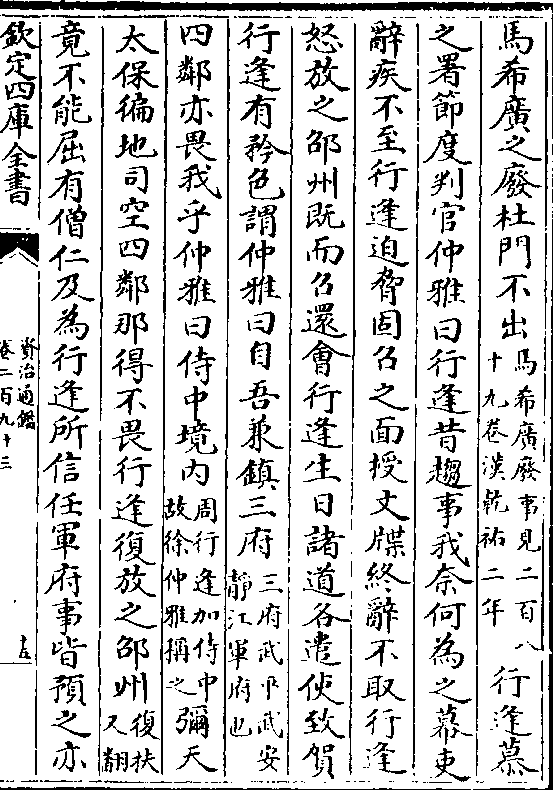 馬希廣之廢杜門不出馬希廣廢事見二百八十九卷漢乾祐二年行逢慕
之署節度判官仲雅曰行逢昔趨事我奈何為之幕吏
辭疾不至行逢迫脅固召之面授文牒終辭不取行逢
怒放之邵州既而召還會行逢生日諸道各遣使致賀
行逢有矜色謂仲雅曰自吾兼鎮三府三府武平武安靜江軍府也
四鄰亦畏我乎仲雅曰侍中境内周行逢加侍中故徐仲雅稱之彌天
太保徧地司空四鄰那得不畏行逢復放之邵州復扶又翻
竟不能屈有僧仁及為行逢所信任軍府事皆預之亦
欽定四庫全書
資治通鑑
卷二百九十三